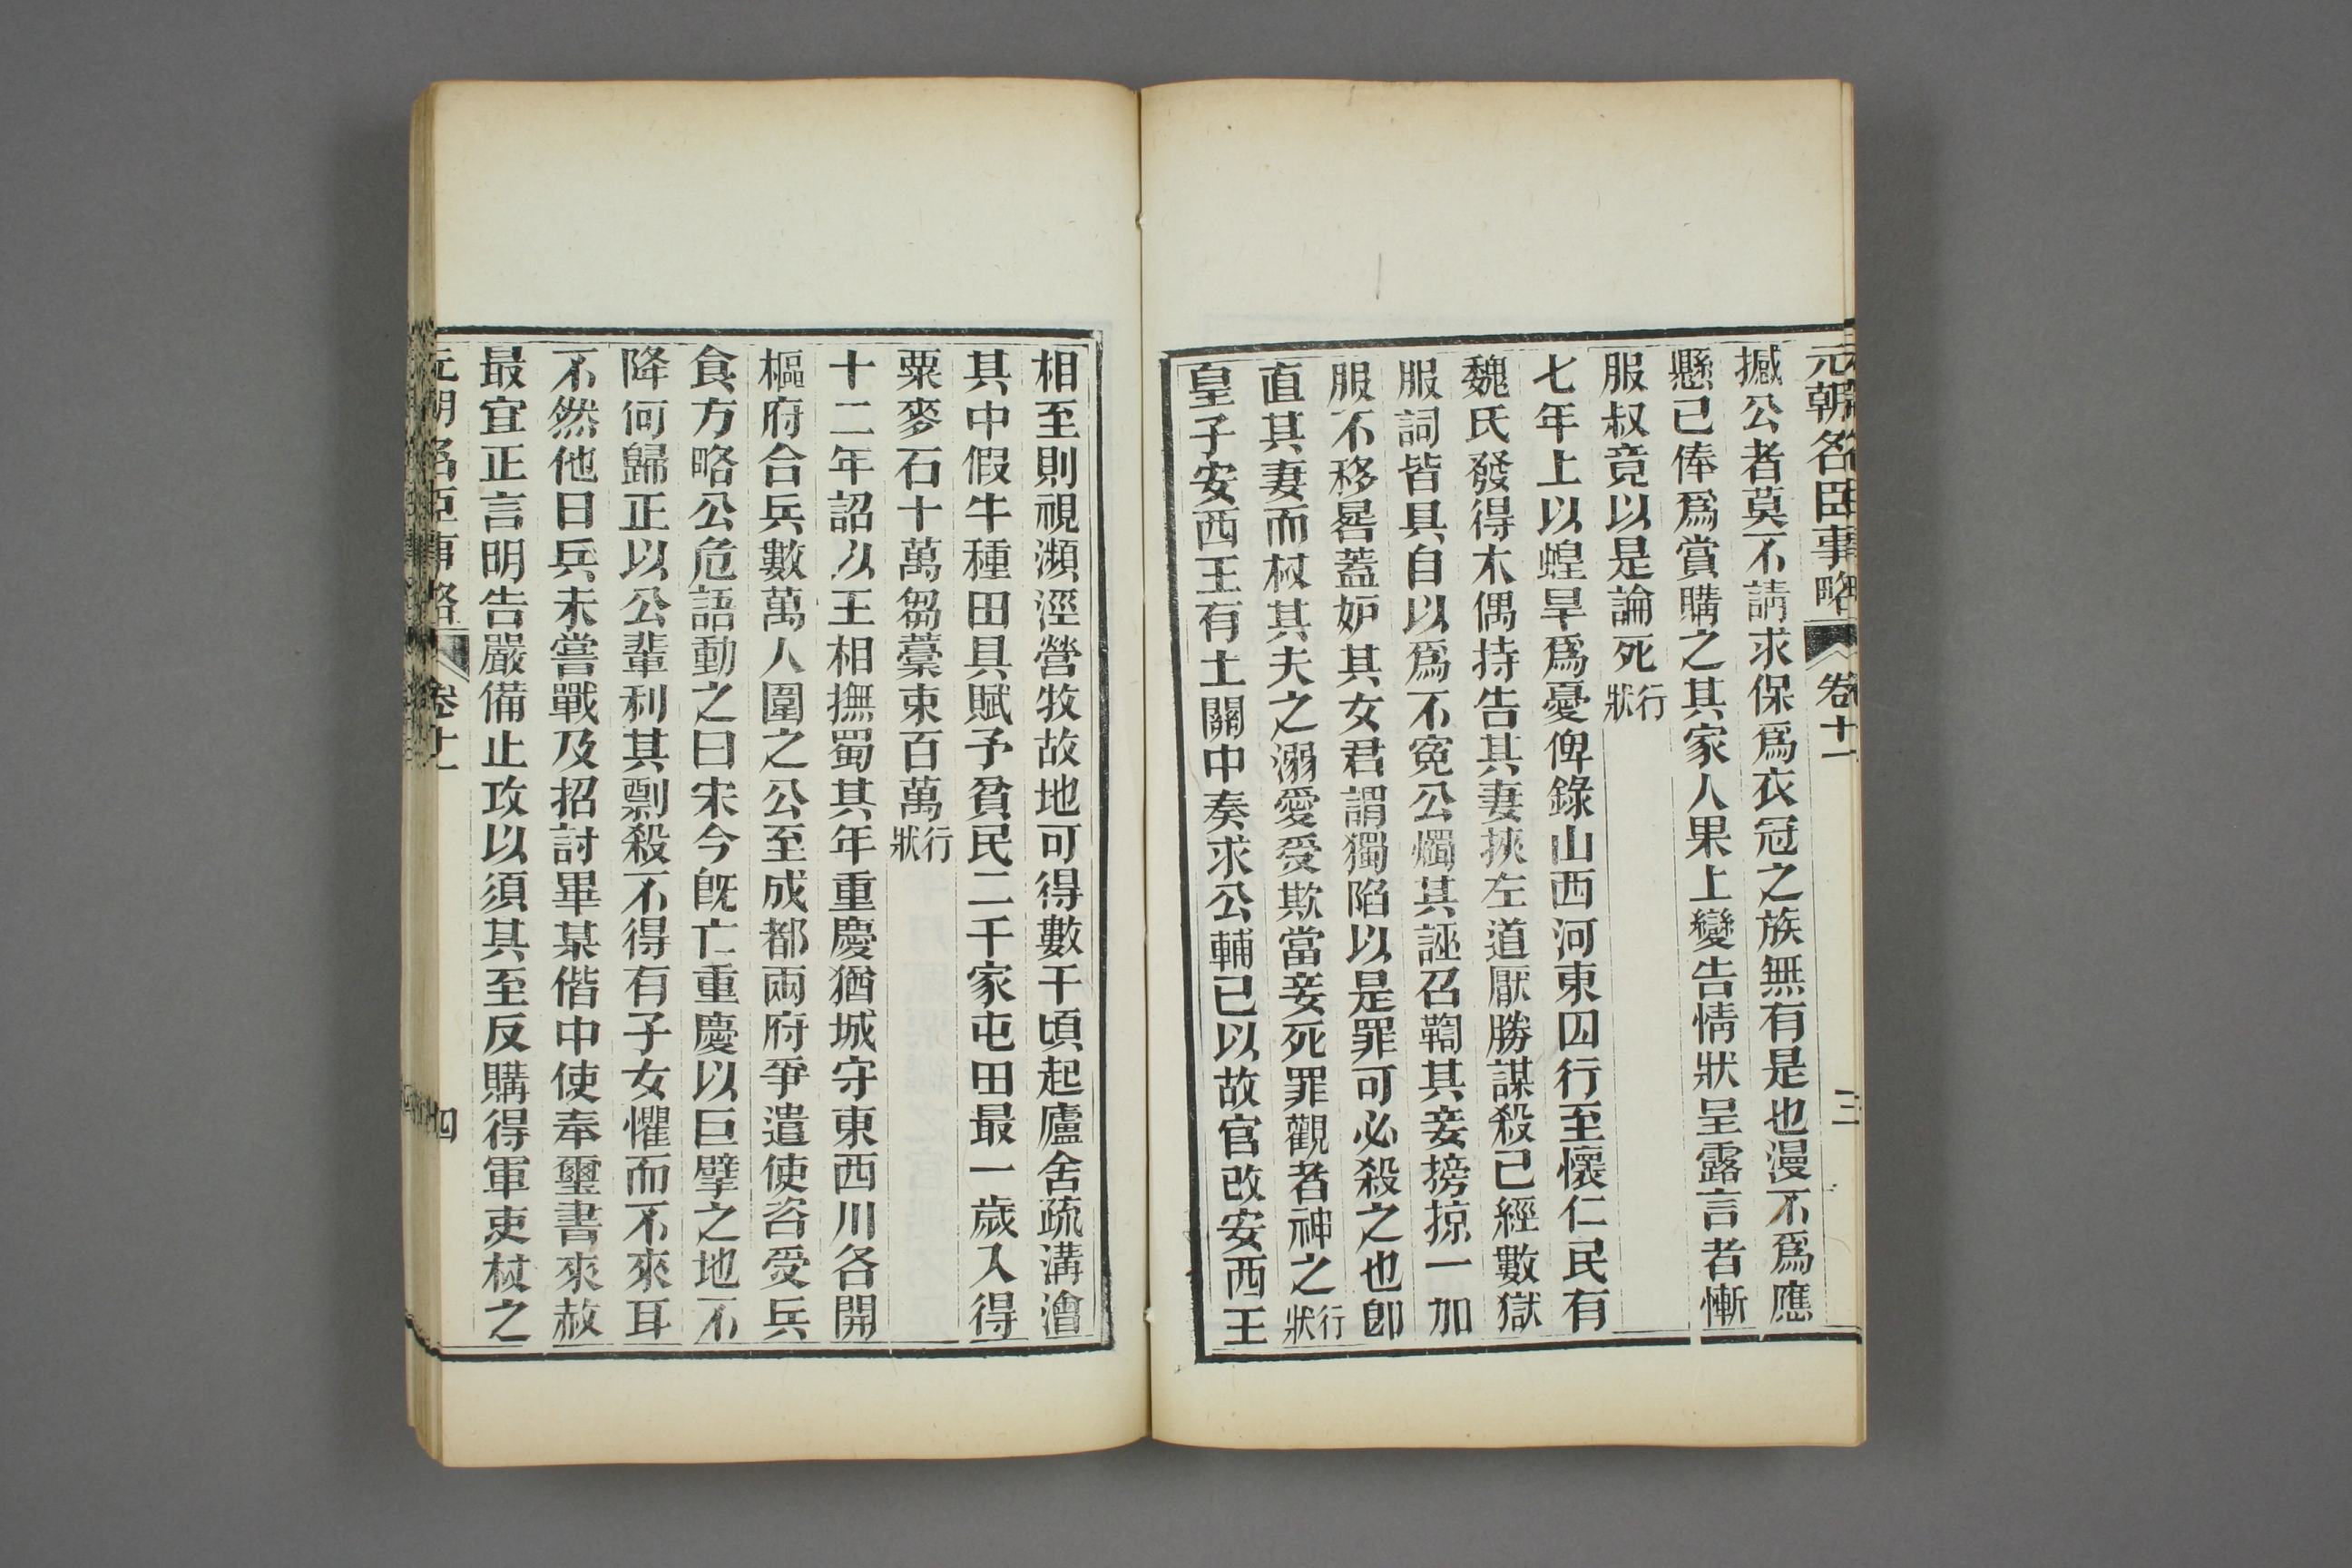 元朝名臣事略 卷十一 三
撼公者莫不請求保爲衣冠之族無有是也漫不爲應
懸己俸爲賞購之其家人果上變告情狀呈露言者慚
服叔竟以是論死行狀
七年上以蝗旱爲憂俾錄山西河東囚行至懷仁民有
魏氏發得木偶持告其妻挾左道厭勝謀殺己經數獄
服詞皆具自以爲不寃公燭其誣召鞫其妾搒掠一加
服不移晷蓋妒其女君謂獨陷以是罪可必殺之也卽
直其妻而杖其夫之溺愛受欺當妾死罪觀者神之行狀
皇子安西王有土關中奏求公輔己以故官改安西王
相至則視瀕涇營牧故地可得數千頃起廬舍疏溝澮
其中假牛種田具賦予貧民二千家屯田最一歲入得
粟麥石十萬芻藁束百萬行狀
十二年詔以王相撫蜀其年重慶猶城守東西川各開
樞府合兵數萬人圍之公至成都兩府爭遣使咨受兵
食方略公危語動之曰宋今旣亡重慶以巨擘之地不
降何歸正以公輩利其剽殺不得有子女懼而不來耳
不然他日兵未嘗戰及招討畢某偕中使奉璽書來赦
最宜正言明告嚴備止攻以須其至反購得軍吏杖之
元朝名臣事略 卷十一 四